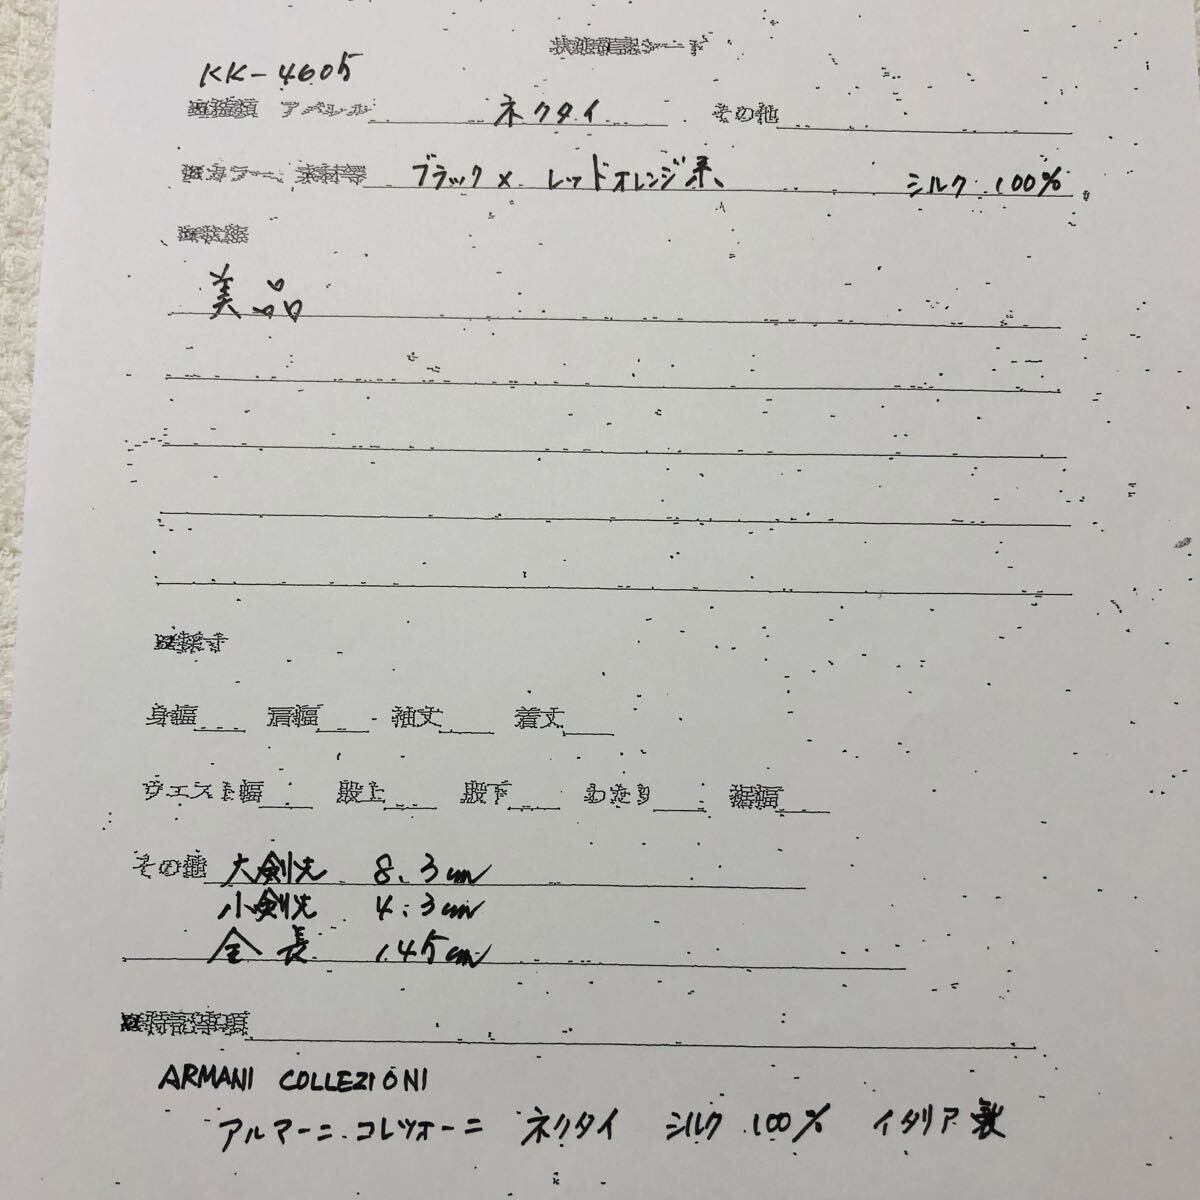 状態確認シート
KK-4605
種類 アパレル ネクタイ その他
カラー、素材等 ブラック×レッドオレンジ系、 シルク100%
状態
美品
採寸
身幅 肩幅 袖丈 着丈
ウエスト幅 股上 股下 わたり 裾幅
その他 大剣先 8.3cm
小剣先 4.3cm
全長 145cm
特記事項
ARMANI COLLEZIONI
アルマーニ コレツォーニ ネクタイ シルク100% イタリア製